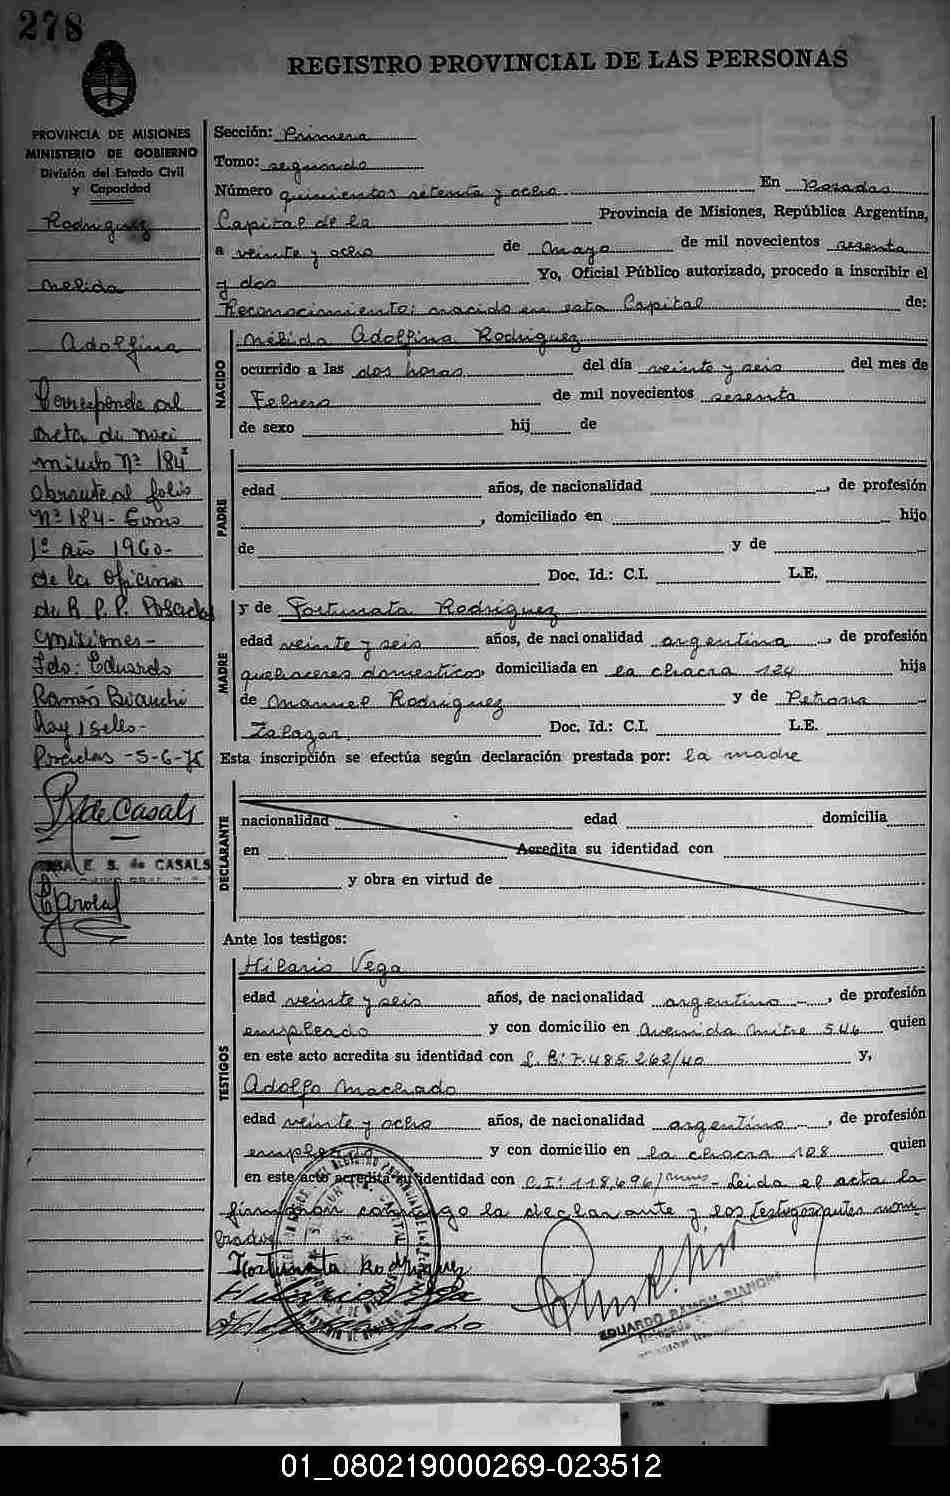 278
REGISTRO PROVINCIAL DE LAS PERSONAS
PROVINCIA DE MISIONES
MINISTERIO DE GOBIERNO
División del Estado Civil
y Capacidad
Rodriguez
Nelida
Adolfina
Corresponde al
acta de naci
miento Nº 184
obrante al folio
Nº 184 - Tomo
1º año 1960-
de la oficina
de R. P. P. Posadas
Misiones-
Fdo: Eduardo
Ramón Bianchi
hay 1 sello-
Posadas -5-6-75
de Casals
E. S. de CASALS
Sección: Primera
Tomo: segundo
Número quinientos setenta y ocho En Posadas
Capital de la Provincia de Misiones, República Argentina,
a veinte y ocho de Mayo de mil novecientos sesenta
y dos Yo, Oficial Público autorizado, procedo a inscribir el
Reconocimiento: nacido en esta Capital de:
NACIDO
Nélida Adolfina Rodriguez
ocurrido a las dos horas del día veinte y seis del mes de
Febrero de mil novecientos sesenta
de sexo hij de
PADRE
edad años, de nacionalidad , de profesión
, domiciliado en hijo
de y de
Doc. Id.: C.I. L.E.
MADRE
y de Fortunata Rodriguez
edad veinte y seis años, de nacionalidad argentina , de profesión
quehaceres domesticos domiciliada en la chacra 124 hija
de Manuel Rodriguez y de Petrona
Zalazar. Doc. Id.: C.I. L.E.
Esta inscripción se efectúa según declaración prestada por: la madre
DECLARANTE
nacionalidad edad domicilia
en Acredita su identidad con
y obra en virtud de
Ante los testigos:
TESTIGOS
Hilario Vega
edad veinte y seis años, de nacionalidad argentino , de profesión
empleado y con domicilio en Avenida Mitre 546 quien
en este acto acredita su identidad con 7.485.262/40 y,
Adolfo Machado
edad veinte y ocho años, de nacionalidad argentino , de profesión
empleado y con domicilio en la chacra 128 quien
en este acto acredita su identidad con C.I. 118.696/ Mnes - Leida el acta la
firmaron conmigo la declarante y los testigos antes nom
brados
Fortunata Rodriguez
EDUARDO RAMON BIANCHI
01_080219000269-023512